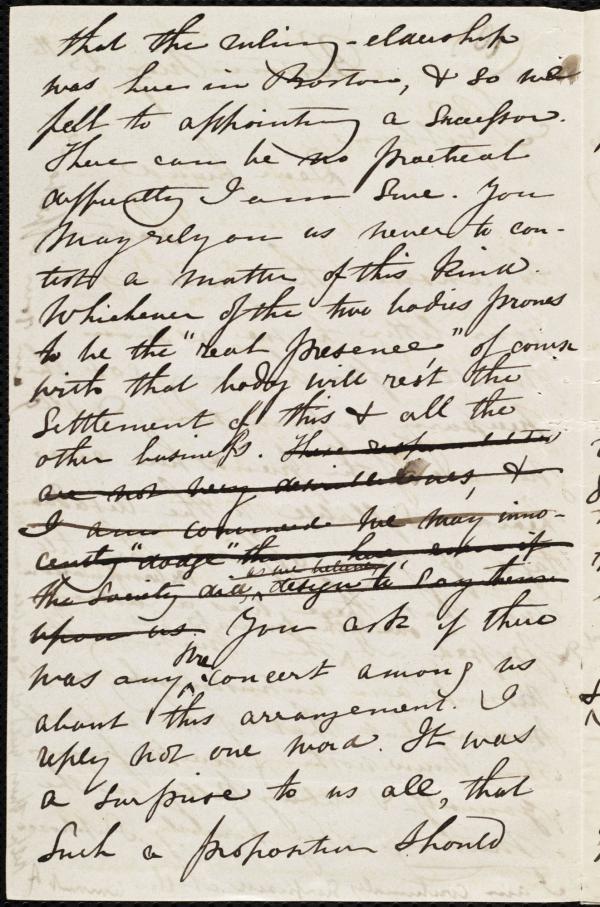 that the ruling-eldership
was here in Boston, & so we
fell to appointing a successor.
There can be no practical
difficulty I am sure. You
may rely on us never to con-
test a matter of this kind.
Whichever of the two bodies proves
to be the "real presence," of course
with that body will rest the
settlement of this & all the
other business. These responsibilities
are not very desirable ones, &
I am convinced we may inno-
cently "dodge" them here even if
the Society did, as we believe, design to lay them
upon us. You ask if there
was any pre concert among us
about this arrangement. I
reply not one word. It was
a surprise to us all, that
such a proposition should